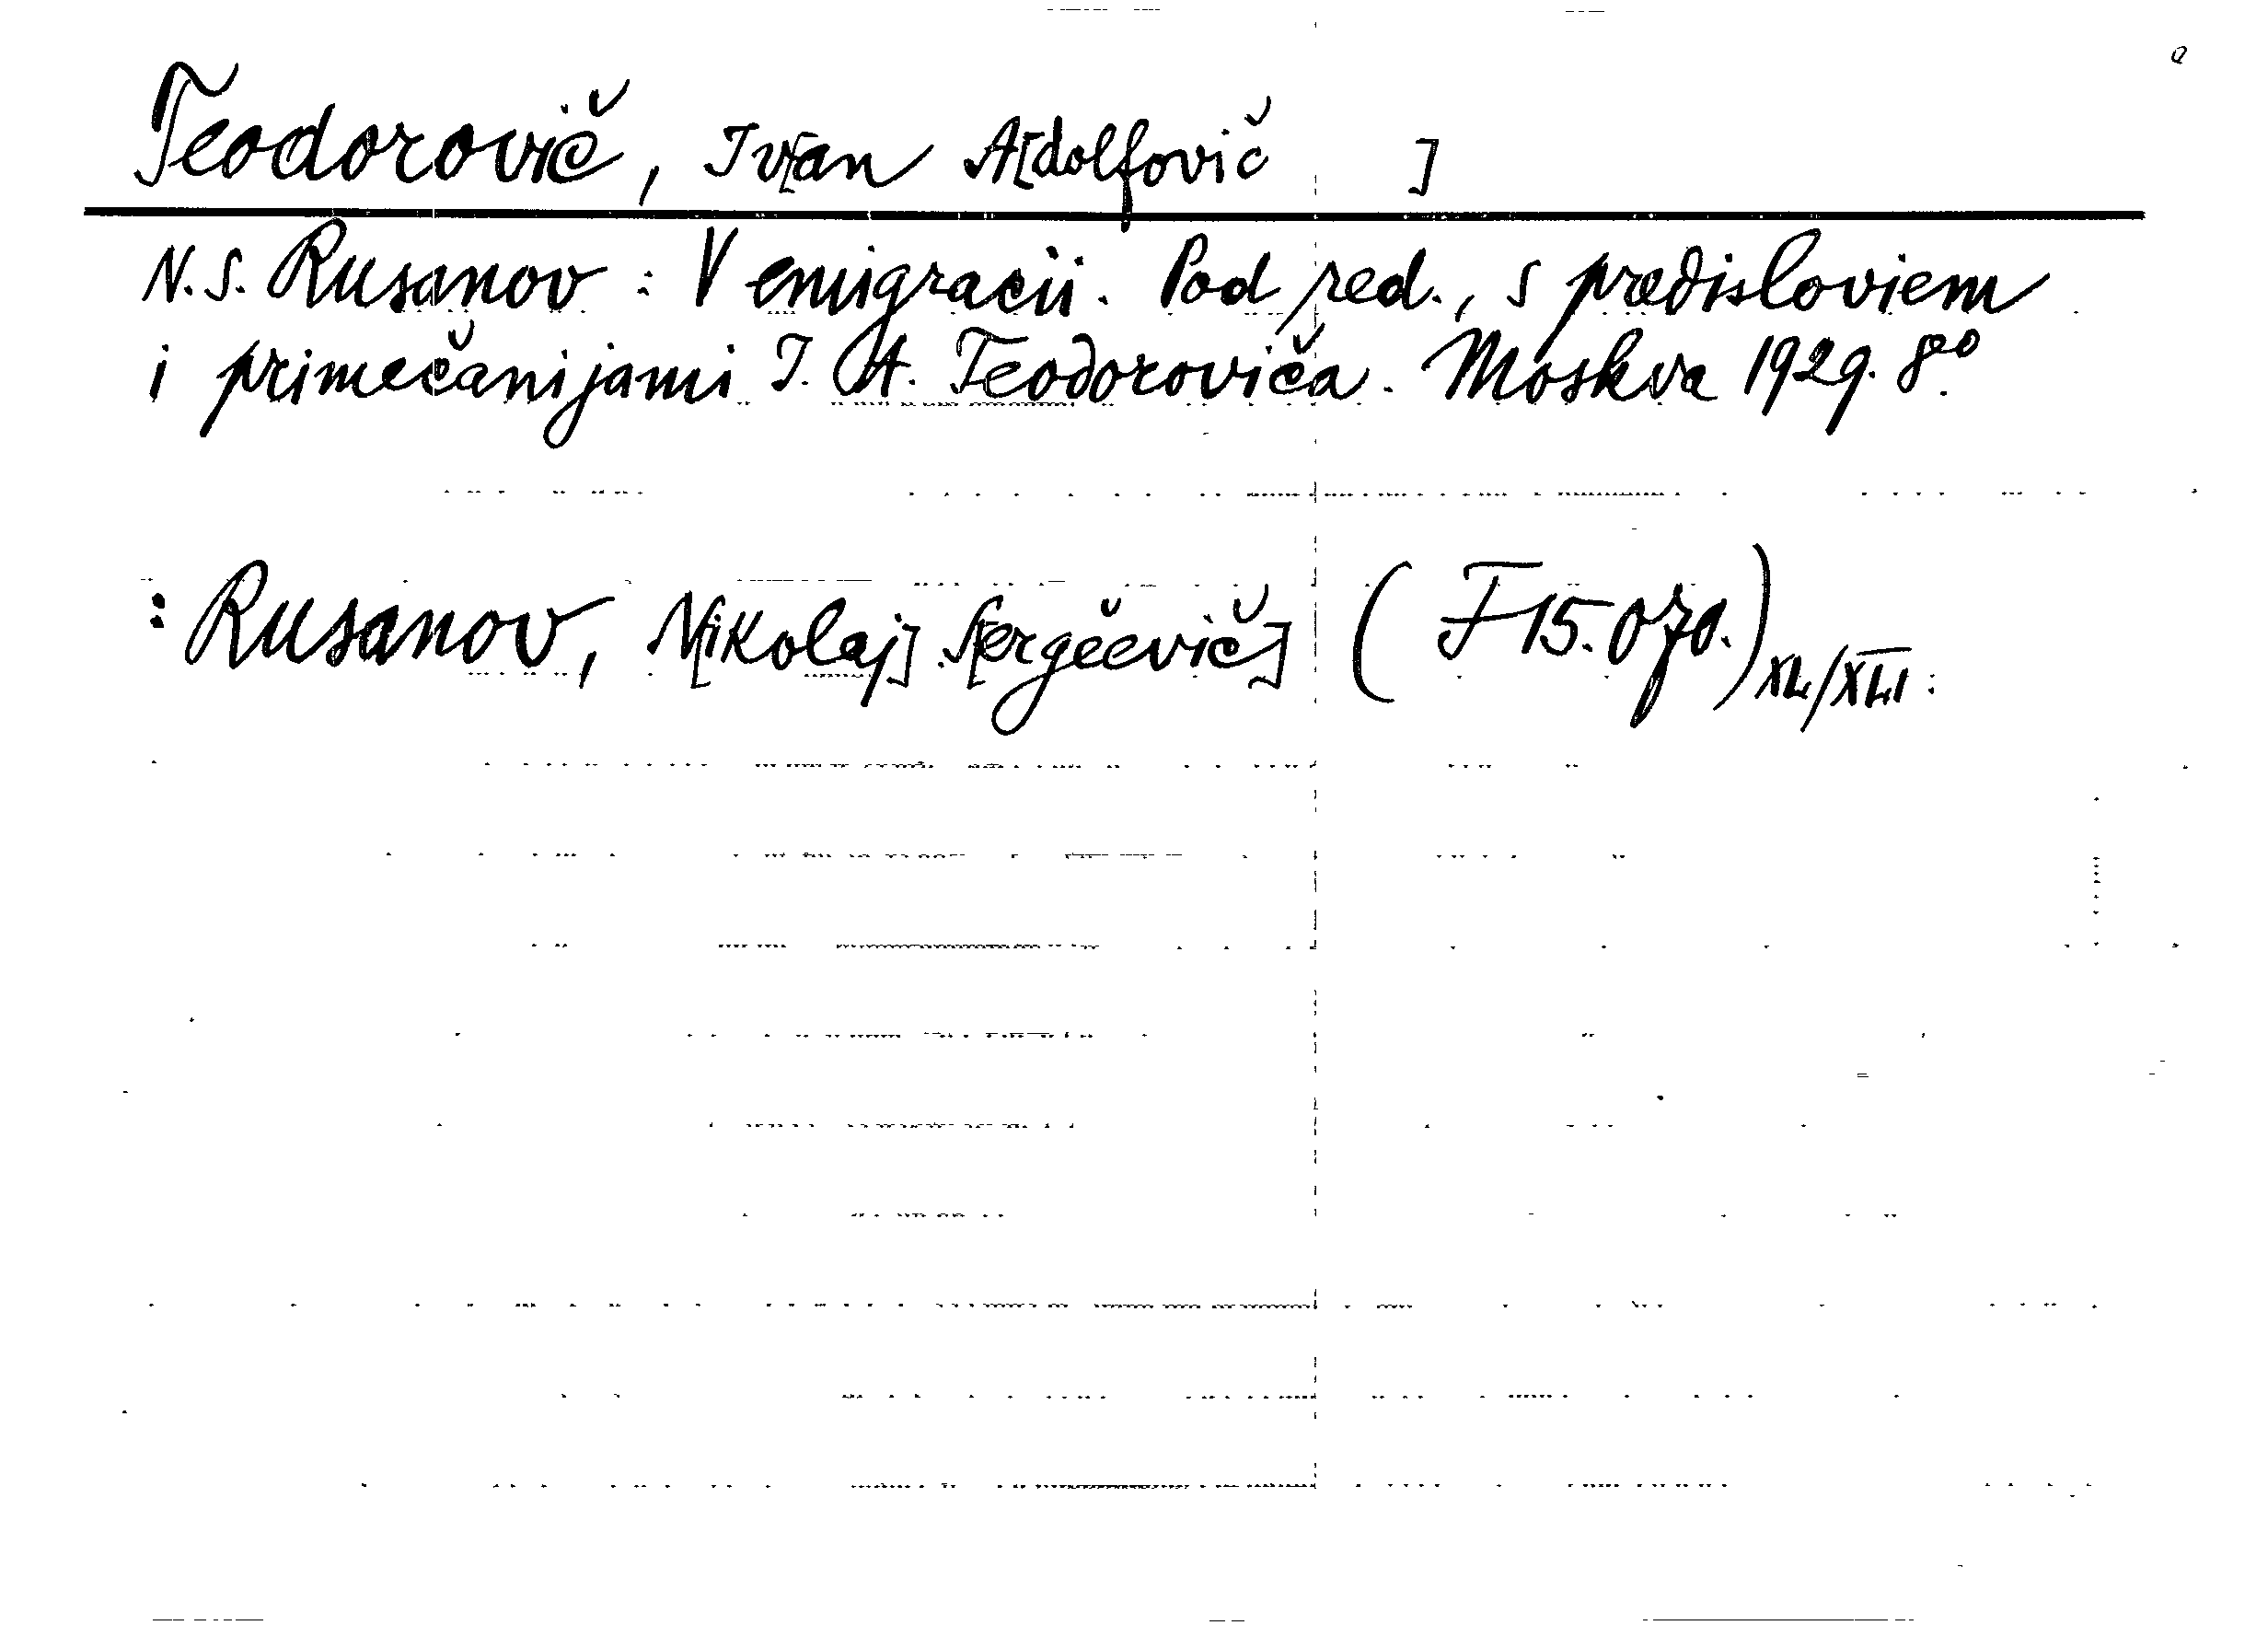 Teodorovič, Iv[an A[dolfovič ]
N. S. Rusanov : V emigracii. Pod red., s predisloviem
i primečanijami I. A. Teodoroviča. Moskva 1929. 8°°.
: Rusanov, N[ikolaj] S[ergěevič] (F 15.070.) XL/XLI.